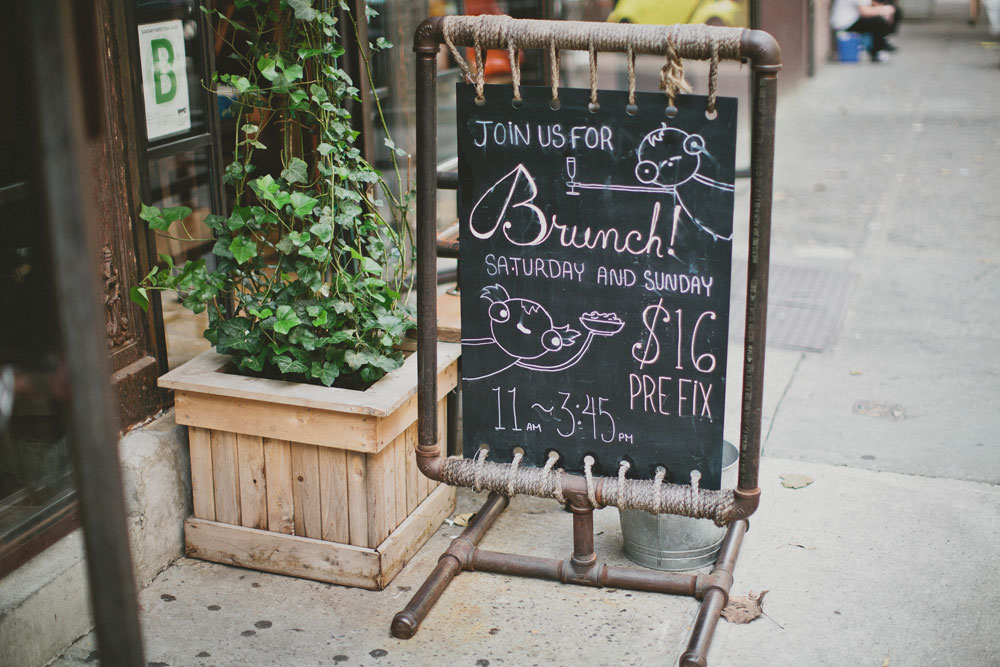 B
JOIN US FOR
Brunch!
SATURDAY AND SUNDAY
$16
PREFIX
11 AM ~ 3:45 PM